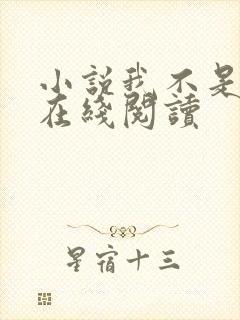 小說我不是
在綫閱讀
星宿十三